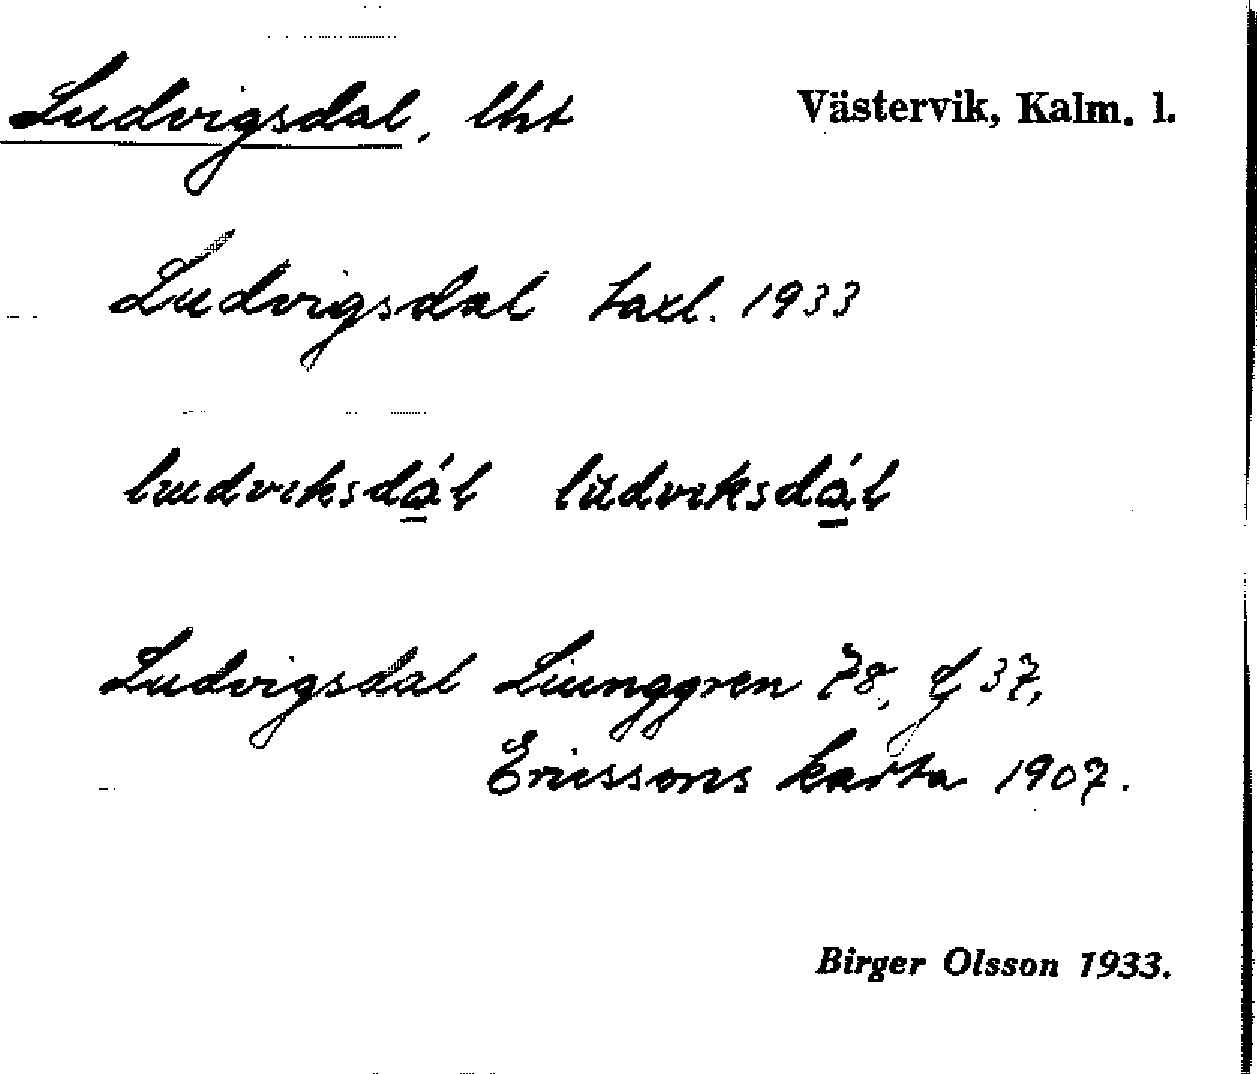 Ludvigsdal, lht Västervik, Kalm. l.
Ludvigsdal taxl. 1933
ludviksdál lüdviksdál
Ludvigsdal Liunggren 78, f 37,
Ericssons karta 1907.
Birger Olsson 1933.